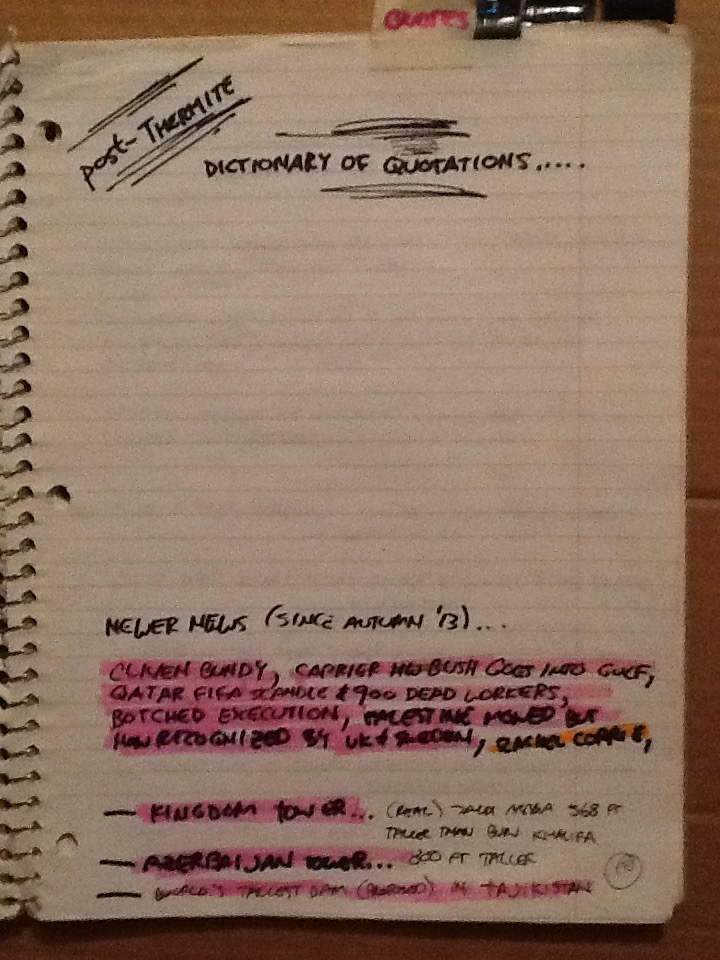 QUOTES
post-THERMITE
DICTIONARY OF QUOTATIONS.....
NEWER NEWS (SINCE AUTUMN '13)...
CLIVEN BUNDY, CARRIER HW BUSH GOES INTO GULF,
QATAR FIFA SCANDLE & 900 DEAD WORKERS,
BOTCHED EXECUTION, PALESTINE BUT
RECOGNIZED BY UK & SWEDEN, RACHEL CORRIE,
— KINGDOM TOWER... (REAL) 568 FT
TALLER THAN BURJ KHALIFA
— AZERBAIJAN TOWER... 800 FT TALLER
— WORLD'S TALLEST DAM (PROPOSED) IN TAJIKISTAN